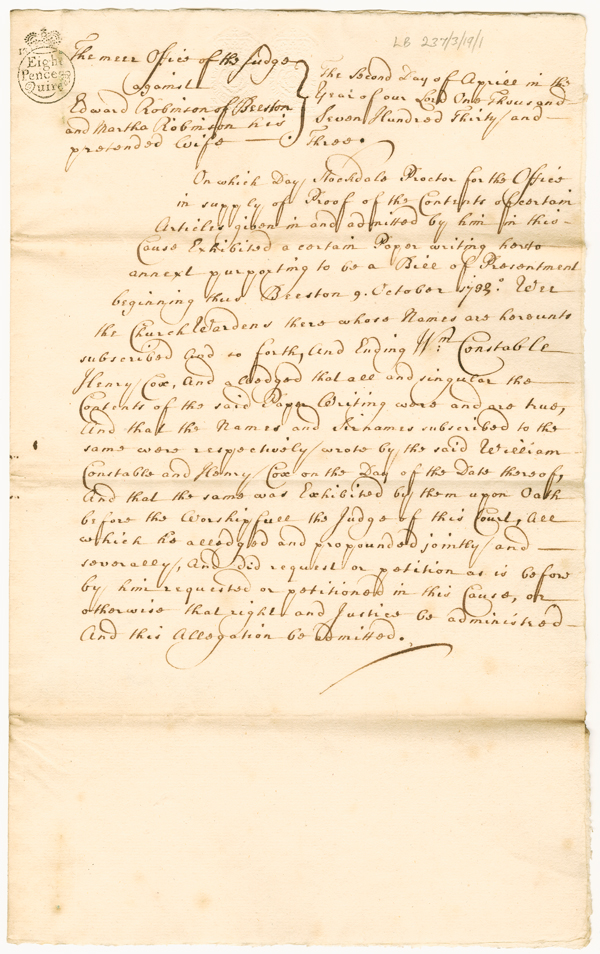 LB 237/3/19/1
Eight
Pence
Quire
The meer Office of the Judge
against
Edward Robinson of Beeston
and Martha Robinson his
pretended Wife
The Second Day of Aprill in the
Year of our Lord One Thousand
Seven Hundred Thirty and
Three.
On which Day Stockdale Proctor for the Office
in supply of Proof of the Contents of certain
Articles given in and admitted by him in this
Cause Exhibited a certain Paper writing hereto
annext purporting to be a Bill of Presentment
beginning thus Beeston 9. October Wee
the Church Wardens there whose Names are hereunto
subscribed And so forth, And Ending Wm. Constable
Henry Cox, And alledged that all and singular the
Contents of the said Paper Writing were and are true,
And that the Names and Sirnames subscribed to the
same were respectively wrote by the said William
Constable and Henry Cox on the Day of the Date thereof,
And that the same was Exhibited by them upon Oath
before the Worshipfull the Judge of this Court, All
which he alledged and propounded jointly and
severally, And did request or petition as is before
by him requested or petitioned in this Cause, or
otherwise that right and Justice be administred
And this Allegation be admitted.